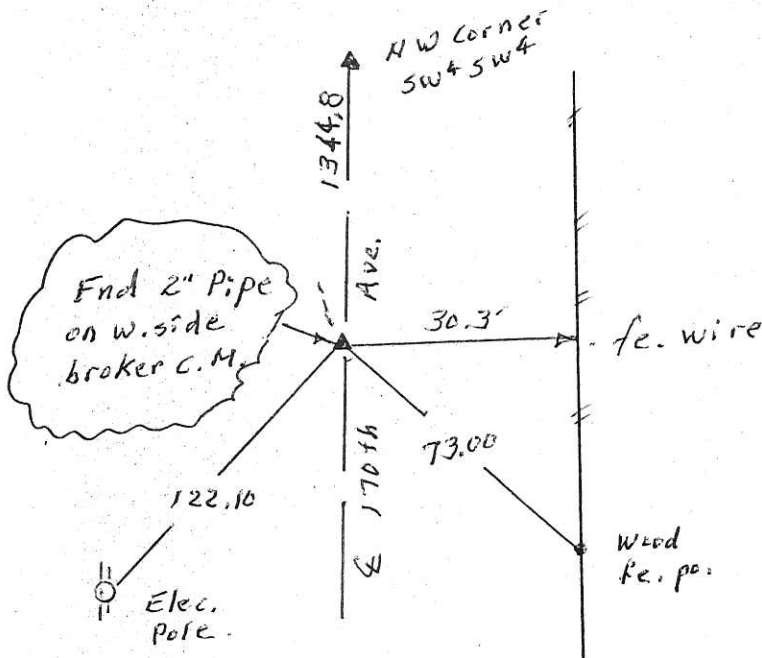 NW Corner
SW⁴ SW⁴
1344.8
Ave.
Fnd 2" Pipe
on w. side
broker C.M.
30.3'
fe. wire
73.00
170th
122.10
℄
Wood
fe. po.
Elec.
Pole.